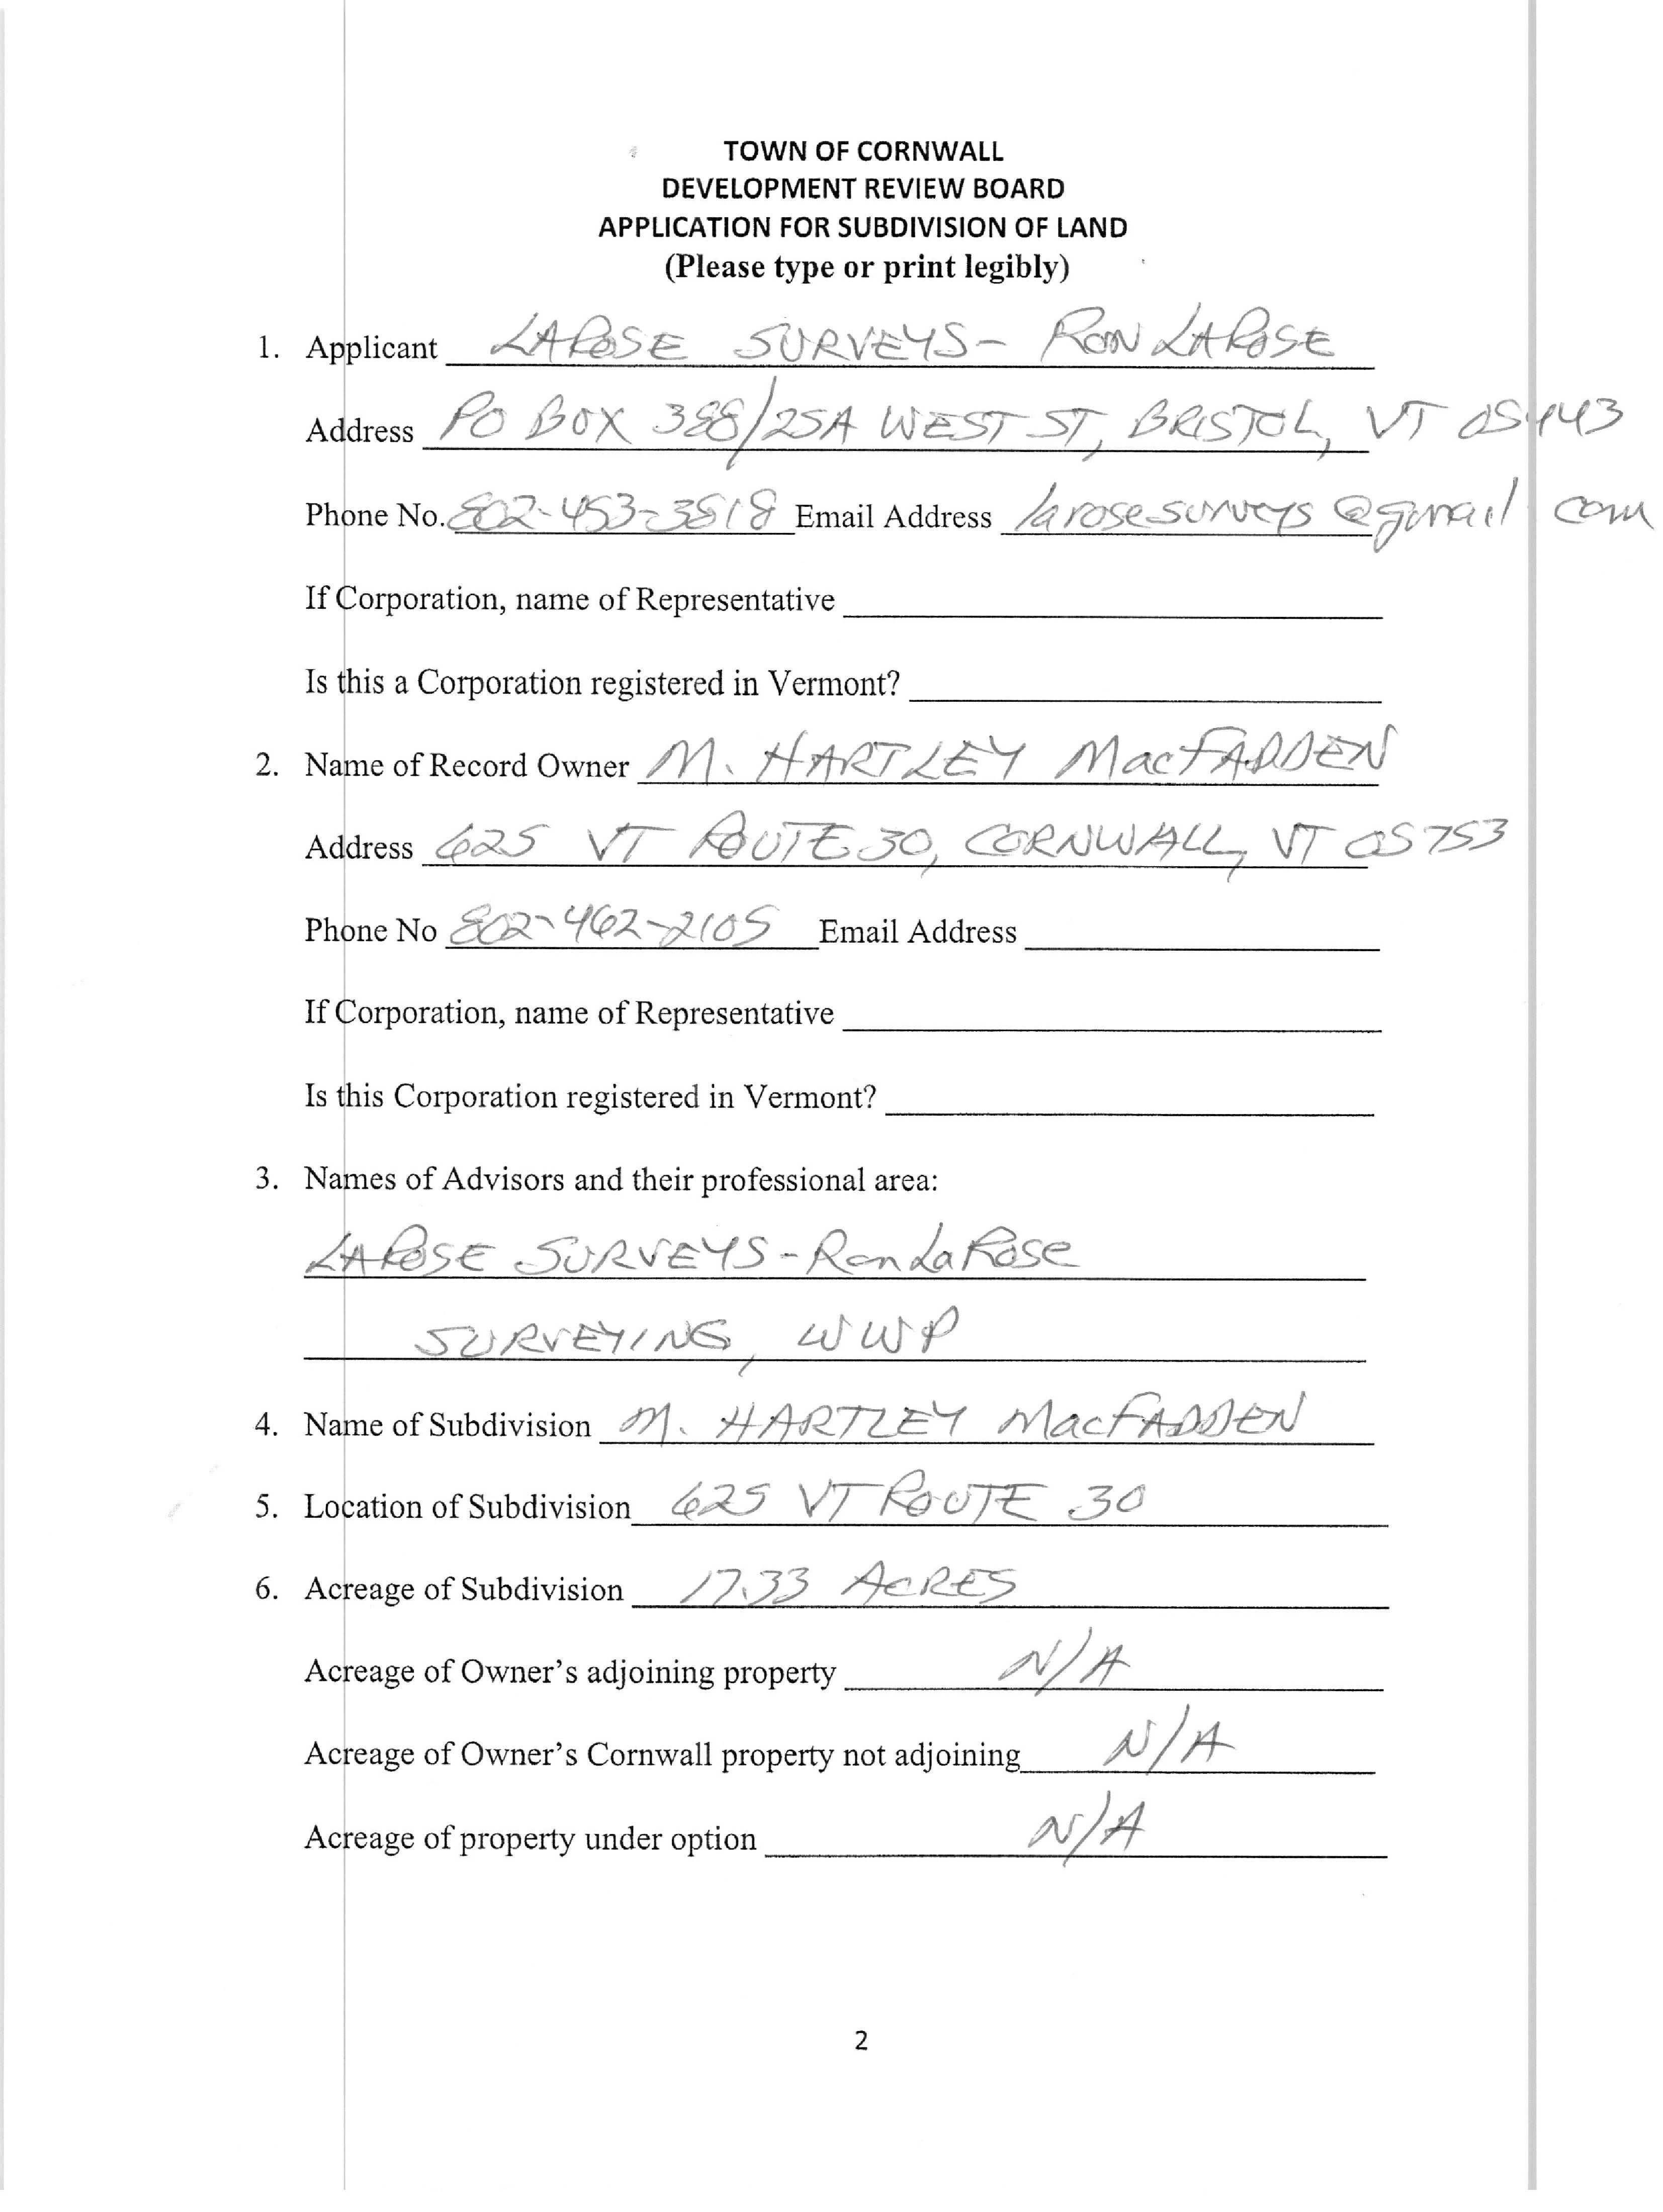 TOWN OF CORNWALL
DEVELOPMENT REVIEW BOARD
APPLICATION FOR SUBDIVISION OF LAND
(Please type or print legibly)
1. Applicant LAROSE SURVEYS - RON LAROSE
Address PO BOX 388/25A WEST ST, BRISTOL, VT 05443
Phone No. 802-453-3818 Email Address larosesurveys@gmail com
If Corporation, name of Representative
Is this a Corporation registered in Vermont?
2. Name of Record Owner M. HARTLEY MacFADDEN
Address 625 VT ROUTE 30, CORNWALL, VT 05753
Phone No 802-462-2105 Email Address
If Corporation, name of Representative
Is this Corporation registered in Vermont?
3. Names of Advisors and their professional area:
LAROSE SURVEYS - Ron LaRose
SURVEYING, WWP
4. Name of Subdivision M. HARTLEY MacFADDEN
5. Location of Subdivision 625 VT ROUTE 30
6. Acreage of Subdivision 17.33 ACRES
Acreage of Owner's adjoining property N/A
Acreage of Owner's Cornwall property not adjoining N/A
Acreage of property under option N/A
2